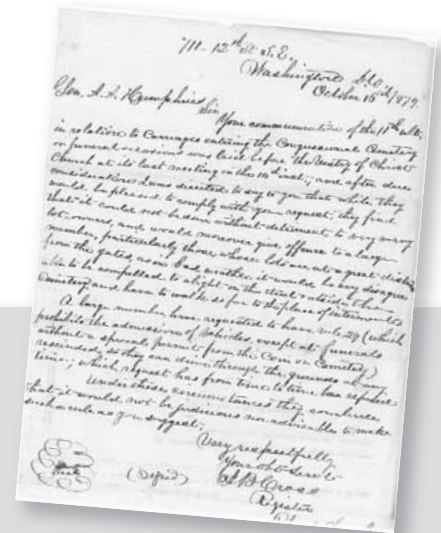 711 - 12th St S.E.
Washington D.C.
October 16th 1879.
Gen. A. A. Humphries
Sir
Your communication of the 11th ult.
in relation to Carriages entering the Congressional Cemetery
on funeral occasions was laid before the Vestry of Christ
Church at its last meeting on the 10 inst., and after due
consideration I was directed to say to you that while they
would be pleased to comply with your request, they find
that it could not be done without detriment to very many
lot-owners, and would moreover give offence to a large
number, particularly those whose lots are at a great distance
from the gates, as in bad weather it would be very disagree
able to be compelled to alight on the street outside the
Cemetery and have to walk so far to the place of interment.
A large number have requested to have rule 29 (which
prohibits the admission of vehicles, except at funerals
without a special permit from the Com on Cemetery)
rescinded, so they can drive through the grounds at any
time; which request has from time to time been refused.
Under these circumstances they conclude
that it would not be judicious nor advisable to make
such a rule as you suggest.
Very respectfully
Your obt Servt
(Signed)
Cross
Register